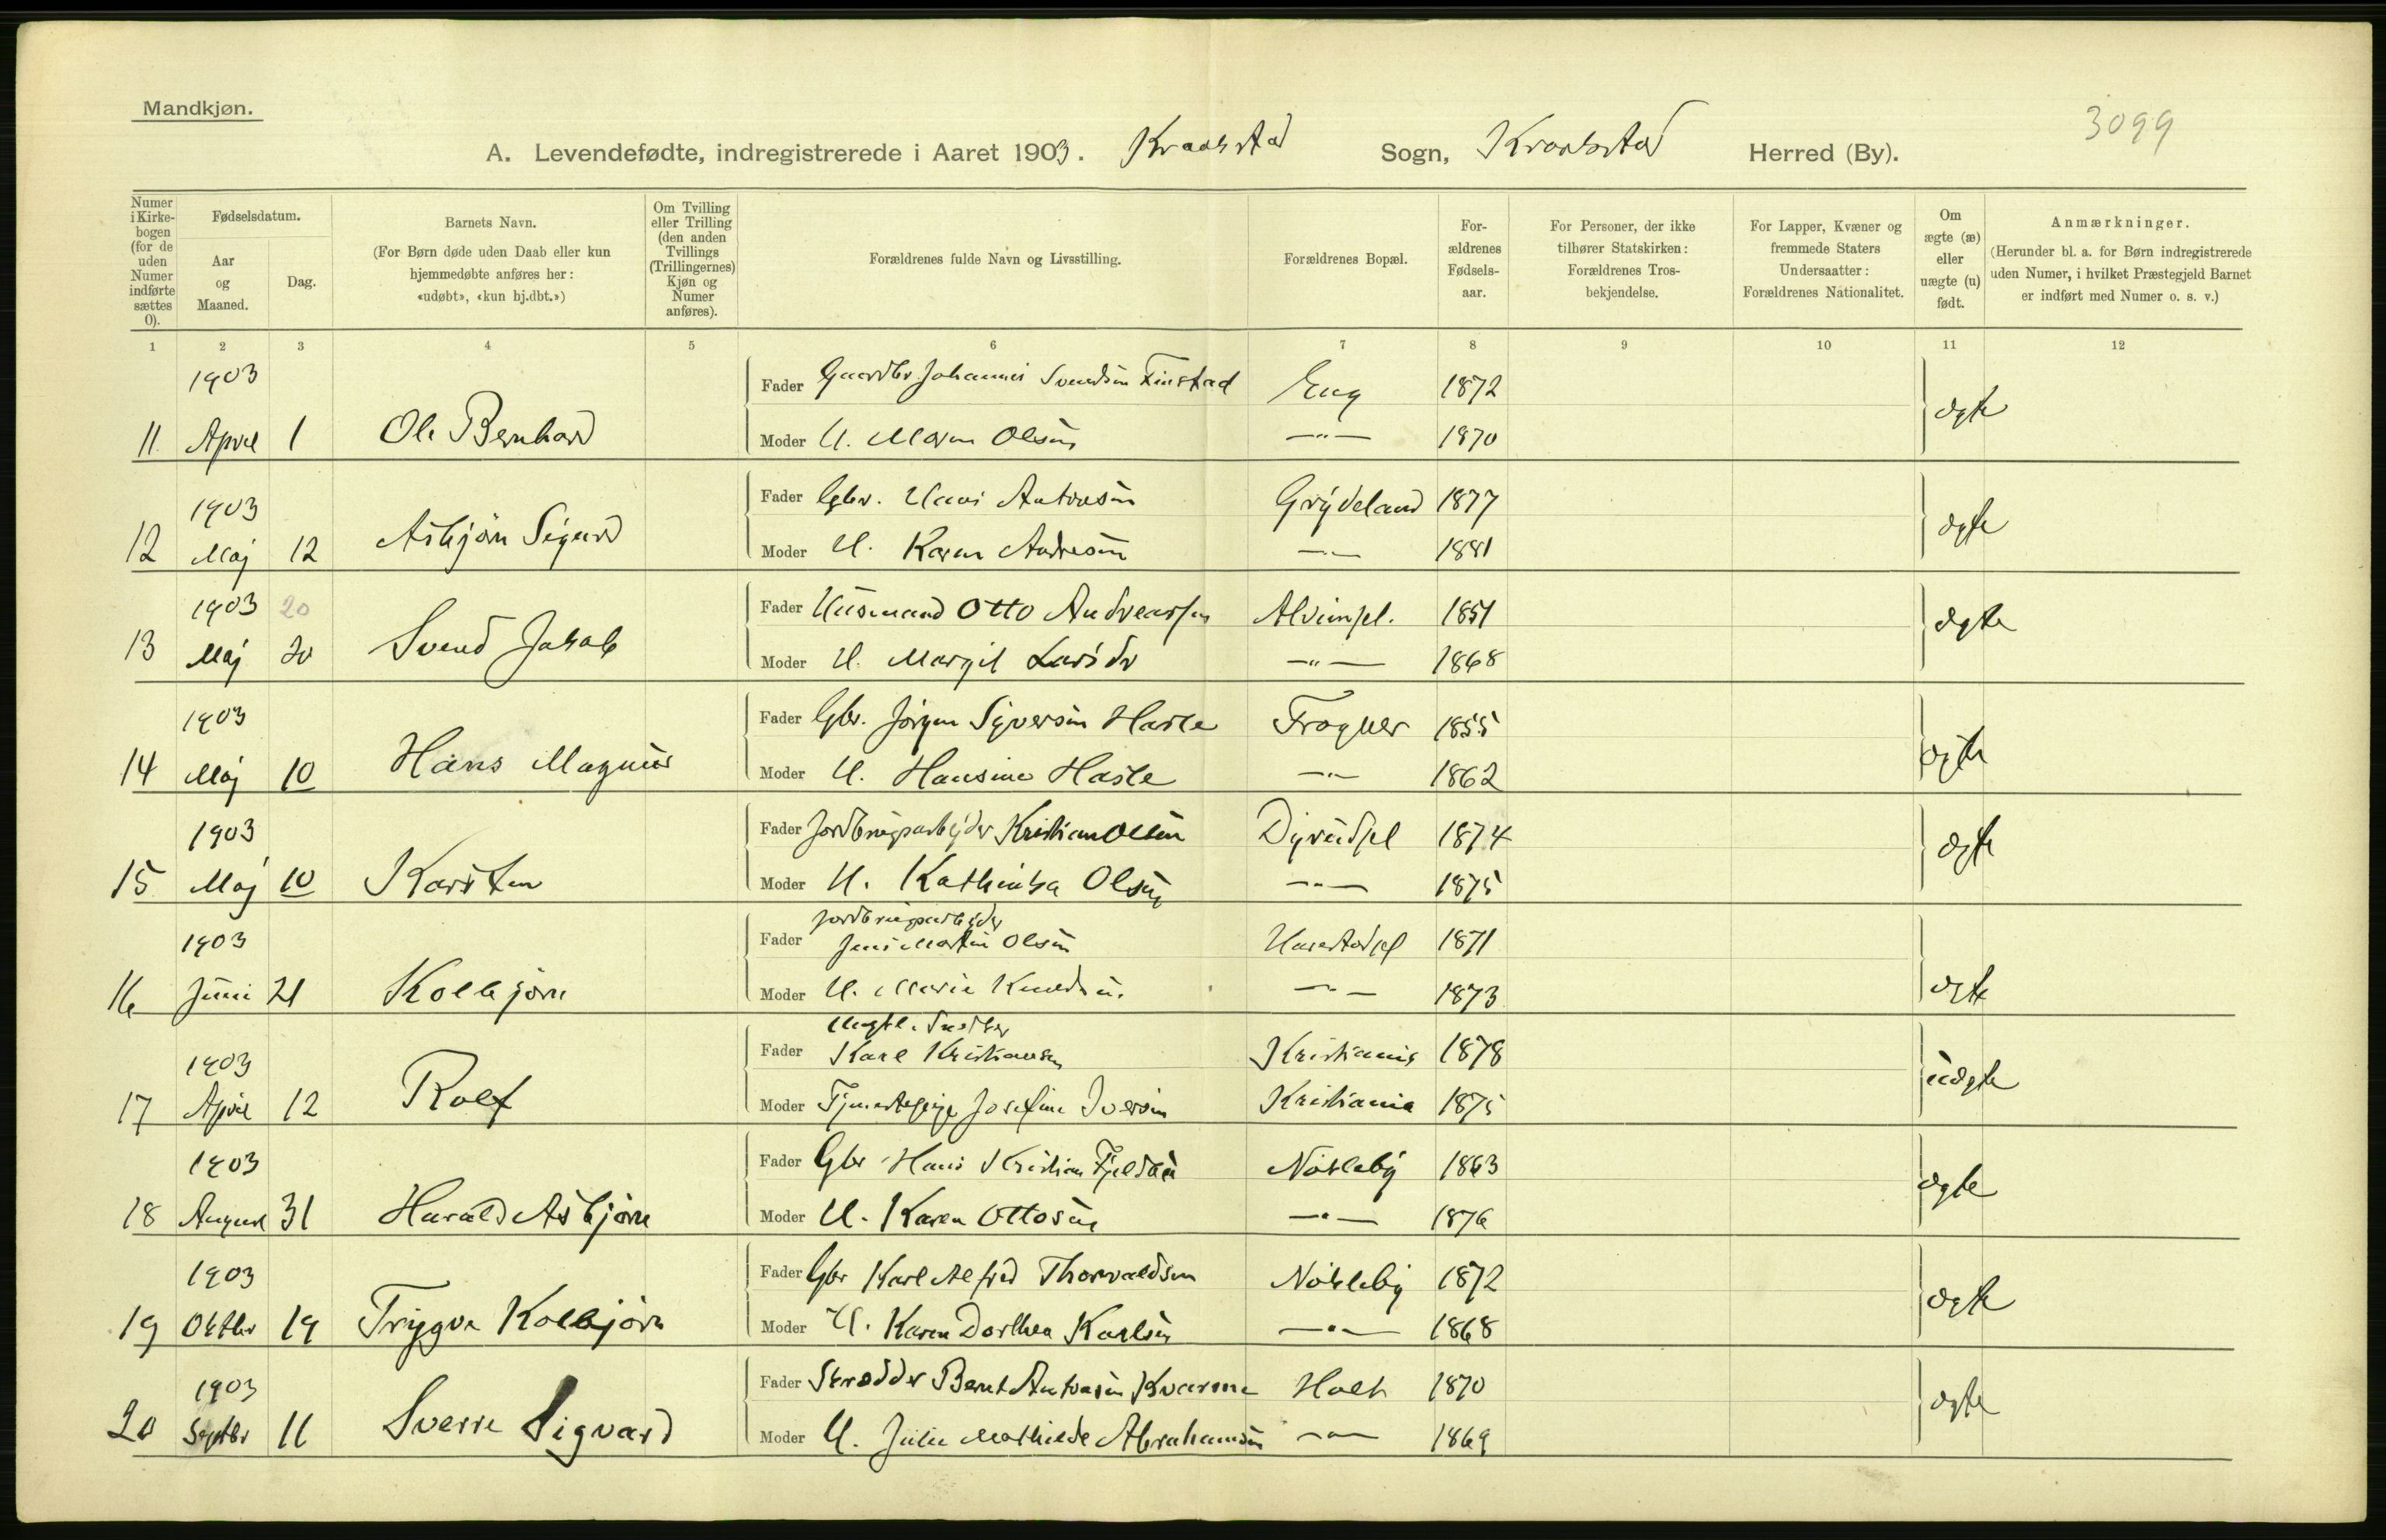 Mandkjøn.
3099
A. Levendefødte, indregistrerede i Aaret 1903. Kraakstad Sogn, Kraakstad Herred (By).
Numer i Kirkebogen (for de uden Numer indførte sættes 0).
Fødselsdatum.
Aar og Maaned.
Dag.
Barnets Navn.
(For Børn døde uden Daab eller kun hjemmedøbte anføres her: «udøbt», «kun hj.dbt.»)
Om Tvilling eller Trilling (den anden Tvillings (Trillingernes) Kjøn og Numer anføres).
Forældrenes fulde Navn og Livsstilling.
Forældrenes Bopæl.
Forældrenes Fødselsaar.
For Personer, der ikke tilhører Statskirken: Forældrenes Trosbekjendelse.
For Lapper, Kvæner og fremmede Staters Undersaatter: Forældrenes Nationalitet.
Om ægte (æ) eller uægte (u) født.
Anmærkninger.
(Herunder bl. a. for Børn indregistrerede uden Numer, i hvilket Præstegjeld Barnet er indført med Numer o. s. v.)
1 2 3 4 5 6 7 8 9 10 11 12
1903 Fader Gaardbr Johannes Svendsen Finstad Eng 1872
11 April 1 Ole Bernhard Moder H. Maren Olsen —"— 1870 ægte
1903 Fader Gbr. Hans Antonsen Grydeland 1877
12 Maj 12 Asbjørn Sigurd Moder H. Karen Andresen —"— 1881 ægte
1903 20 Fader Husmand Otto Andreassen 1851
13 Maj 20 Svend Jakob Moder H. Margit Larsdr —"— 1868 ægte
1903 Fader Gbr. Jørgen Syversen Hasle Frogner 1855
14 Maj 10 Hans Magnus Moder H. Hansine Hasle —"— 1862 ægte
1903 Fader Jordbrugsarbejder Kristian Olsen 1874
15 Maj 10 Karsten Moder H. Kathinka Olsen —"— 1875 ægte
Jordbrugsarbejder
1903 Fader Jens Martin Olsen 1871
16 Juni 21 Kolbjørn Moder H. Marie Knudsen —"— 1873 ægte
Ungk. Snedker
1903 Fader Karl Kristiansen Kristiania 1878
17 April 12 Rolf Moder Tjenestepige Josefine Iversen Kristiania 1875 uægte
1903 Fader Gbr Hans Kristian 1863
18 August 31 Harald Asbjørn Moder H. Karen Ottosen —"— 1876 ægte
1903 Fader Gbr Karl Alfred Thorvaldsen 1872
19 Oktbr 19 Trygve Kolbjørn Moder H. Karen Dorthea Karlsen —"— 1868 ægte
1903 Fader Skrædder Bernt Antonsen Kvarme Holt 1870
20 Septbr 11 Sverre Sigvard Moder H. Julie Mathilde Abrahamsen —"— 1869 ægte